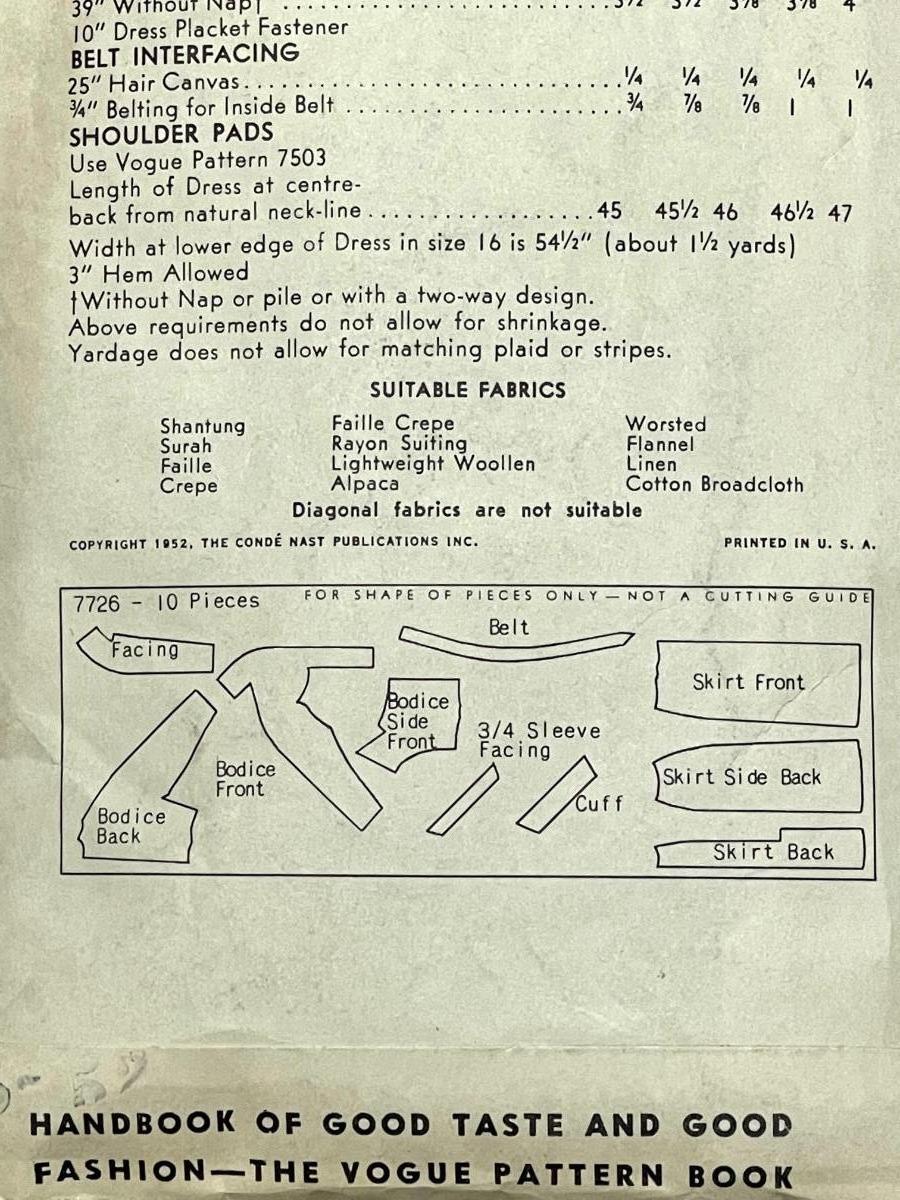 39" Without Nap† ........ 3½ 3½ 3⅝ 3⅞ 4
10" Dress Placket Fastener
BELT INTERFACING
25" Hair Canvas........ ¼ ¼ ¼ ¼ ¼
¾" Belting for Inside Belt ........ ¾ ⅞ ⅞ 1 1
SHOULDER PADS
Use Vogue Pattern 7503
Length of Dress at centre-
back from natural neck-line........ 45 45½ 46 46½ 47
Width at lower edge of Dress in size 16 is 54½" (about 1½ yards)
3" Hem Allowed
†Without Nap or pile or with a two-way design.
Above requirements do not allow for shrinkage.
Yardage does not allow for matching plaid or stripes.
SUITABLE FABRICS
Shantung Faille Crepe Worsted
Surah Rayon Suiting Flannel
Faille Lightweight Woollen Linen
Crepe Alpaca Cotton Broadcloth
Diagonal fabrics are not suitable
COPYRIGHT 1952, THE CONDÉ NAST PUBLICATIONS INC. PRINTED IN U. S. A.
7726 - 10 Pieces FOR SHAPE OF PIECES ONLY—NOT A CUTTING GUIDE
Facing
Belt
Skirt Front
Bodice
Side
Front
3/4 Sleeve
Facing
Bodice
Front
Skirt Side Back
Cuff
Bodice
Back
Skirt Back
HANDBOOK OF GOOD TASTE AND GOOD
FASHION—THE VOGUE PATTERN BOOK